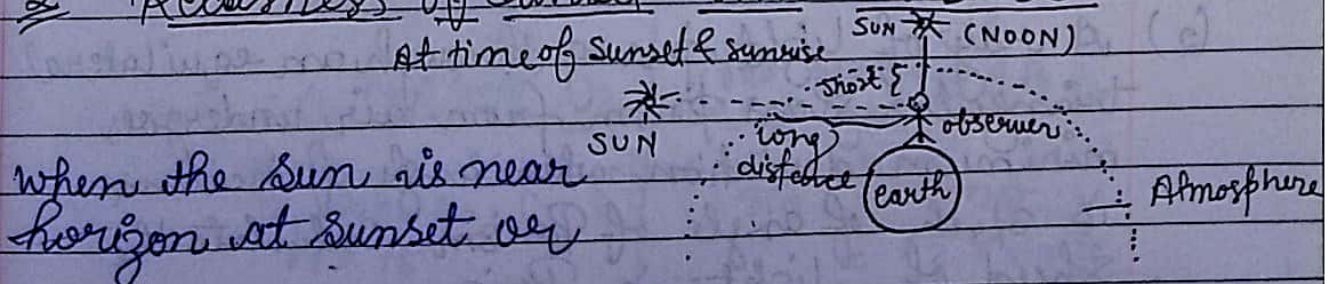 At time of Sunset & Sunrise
SUN (NOON)
Short
SUN
long
distance
observer
earth
Atmosphere
When the Sun is near
horizon at Sunset or